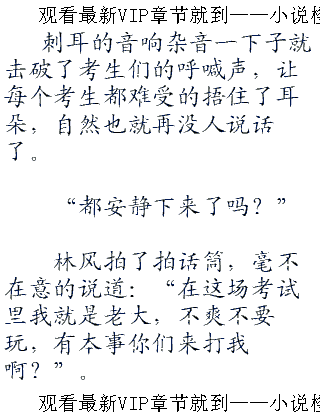 观看最新VIP章节就到——小说
刺耳的音响杂音一下子就
击破了考生们的呼喊声，让
每个考生都难受的捂住了耳
朵，自然也就再没人说话
了。
“都安静下来了吗？”
林风拍了拍话筒，毫不
在意的说道：“在这场考试
里我就是老大，不爽不要
玩，有本事你们来打我
啊？”。
观看最新VIP章节就到——小说